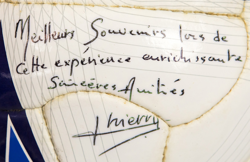 Meilleurs Souvenirs lors de
cette expérience enrichissante
Sincères Amitiés
Thierry